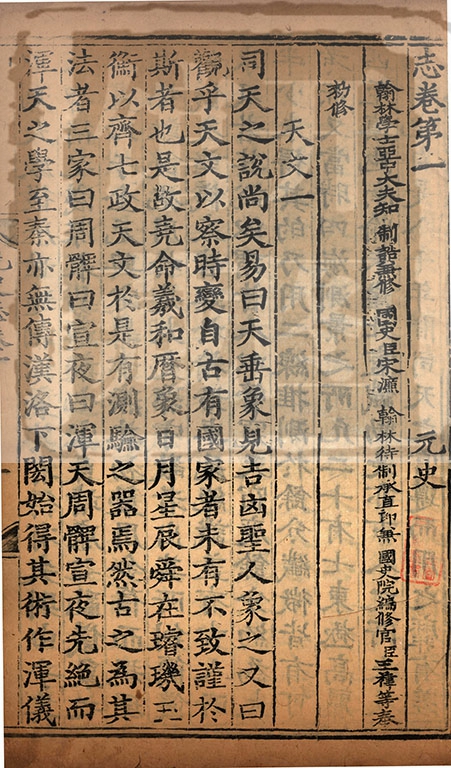 志卷第一 元史
翰林學士亞中大夫知 制誥兼修 國史臣宋濂 翰林待制承直郎兼 國史院編修官臣王禕等奉
勑修
天文一
司天之說尚矣易曰天垂象見吉凶聖人象之又曰
觀乎天文以察時變自古有國家者未有不致謹於
斯者也是故堯命羲和曆象日月星辰舜在璿璣玉
衡以齊七政天文於是有測驗之器焉然古之為其
法者三家曰周髀曰宣夜曰渾天周髀宣夜先絕而
渾天之學至秦亦無傳漢洛下閎始得其術作渾儀